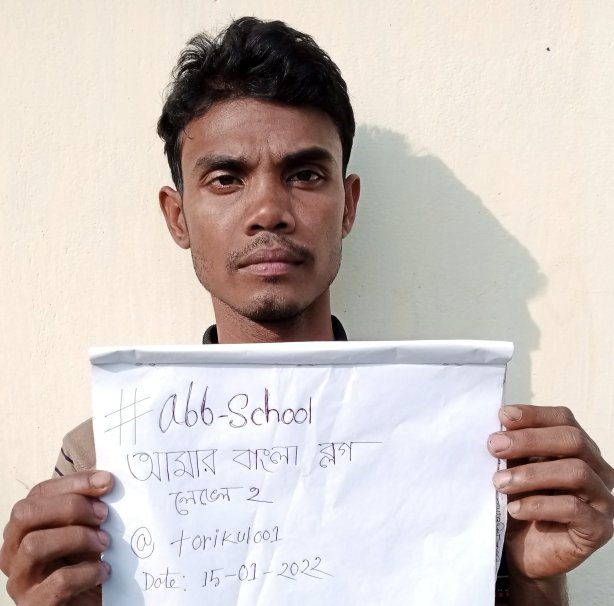 #abb-School
আমার বাংলা ব্লগ
লেভেল ২
@torikul001
Date: 15-01-2022